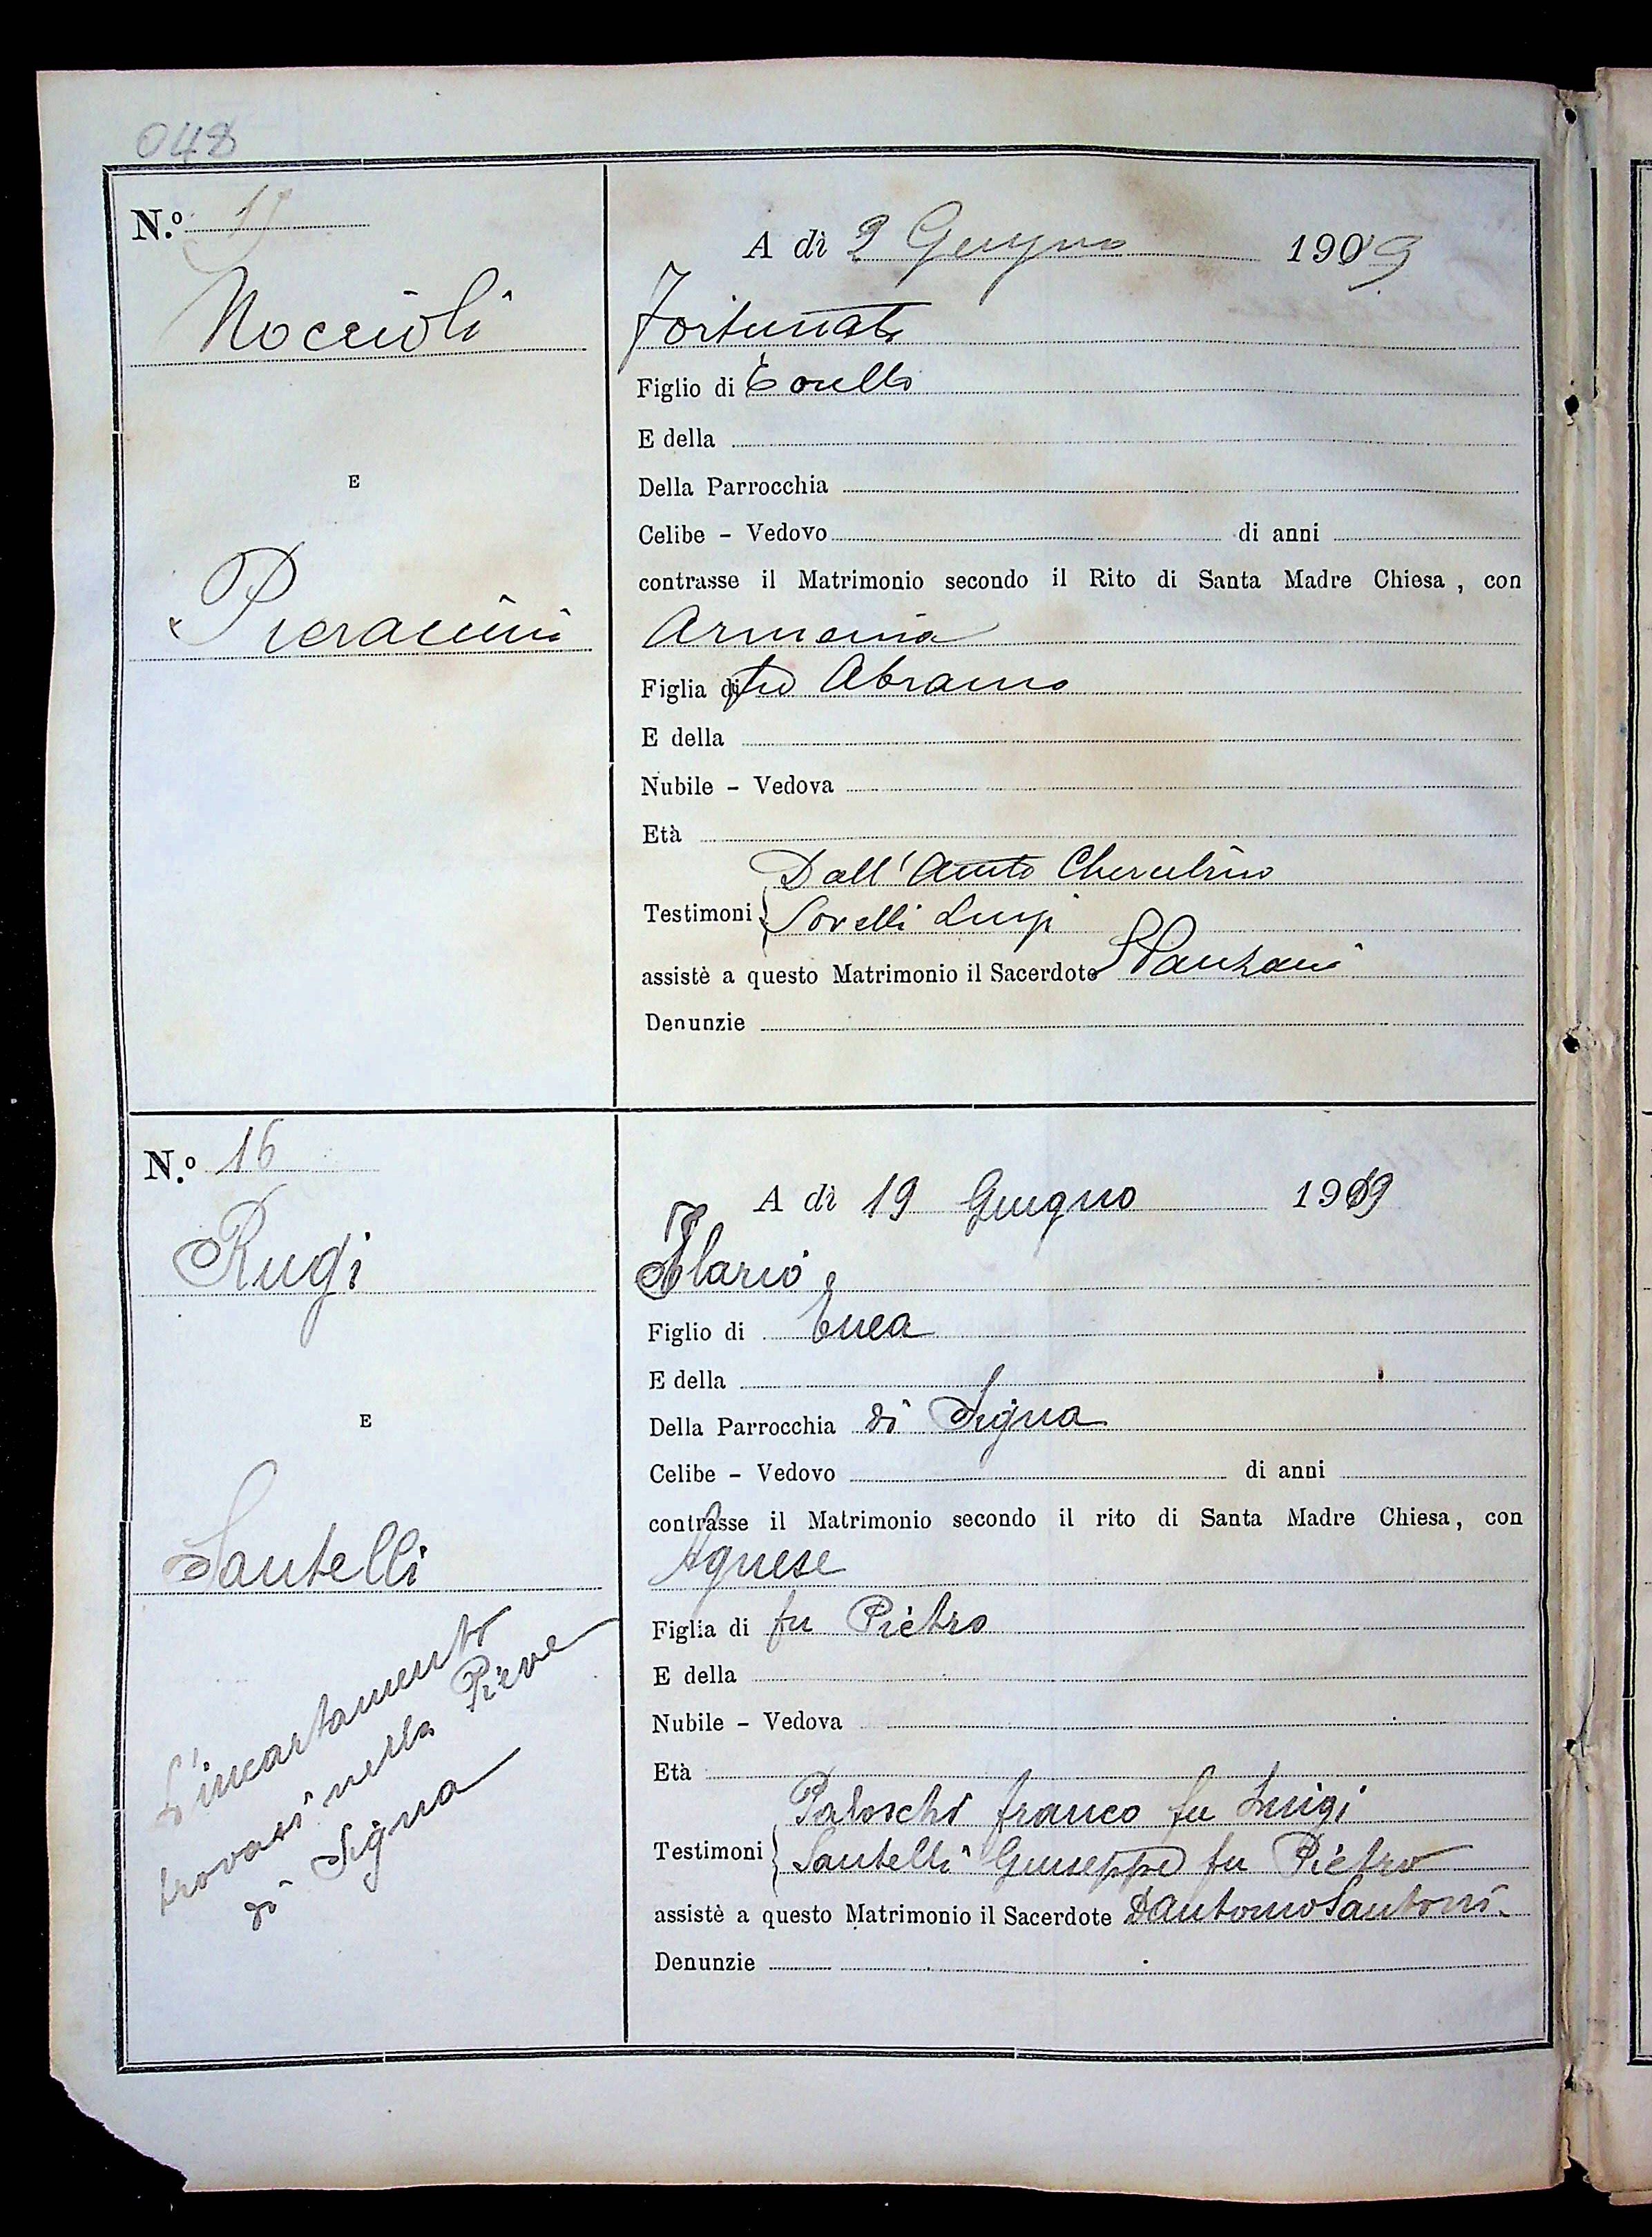 048
N.º 15
A dì 2 Giugno 1909
Noccioli
Fortunato
Figlio di Torello
E della
E
Della Parrocchia
Celibe - Vedovo di anni
contrasse il Matrimonio secondo il Rito di Santa Madre Chiesa, con
Pieraccini
Armenia
Figlia di fu Abramo
E della
Nubile - Vedova
Età
Dall'Aiuto Cherubino
Testimoni Sorelli Luigi
assistè a questo Matrimonio il Sacerdote
Denunzie
N.º 16
A dì 19 Giugno 1919
Rugi
Ilario
Figlio di Enea
E della
E
Della Parrocchia di Signa
Celibe - Vedovo di anni
contrasse il Matrimonio secondo il rito di Santa Madre Chiesa, con
Santelli
Agnese
Figlia di fu Pietro
E della
Nubile - Vedova
Età
L'incartamento
trovasi nella Pieve
di Signa
Paloschi franco fu Luigi
Testimoni Santelli Giuseppe fu Pietro
assistè a questo Matrimonio il Sacerdote D Antonio Santoni.
Denunzie